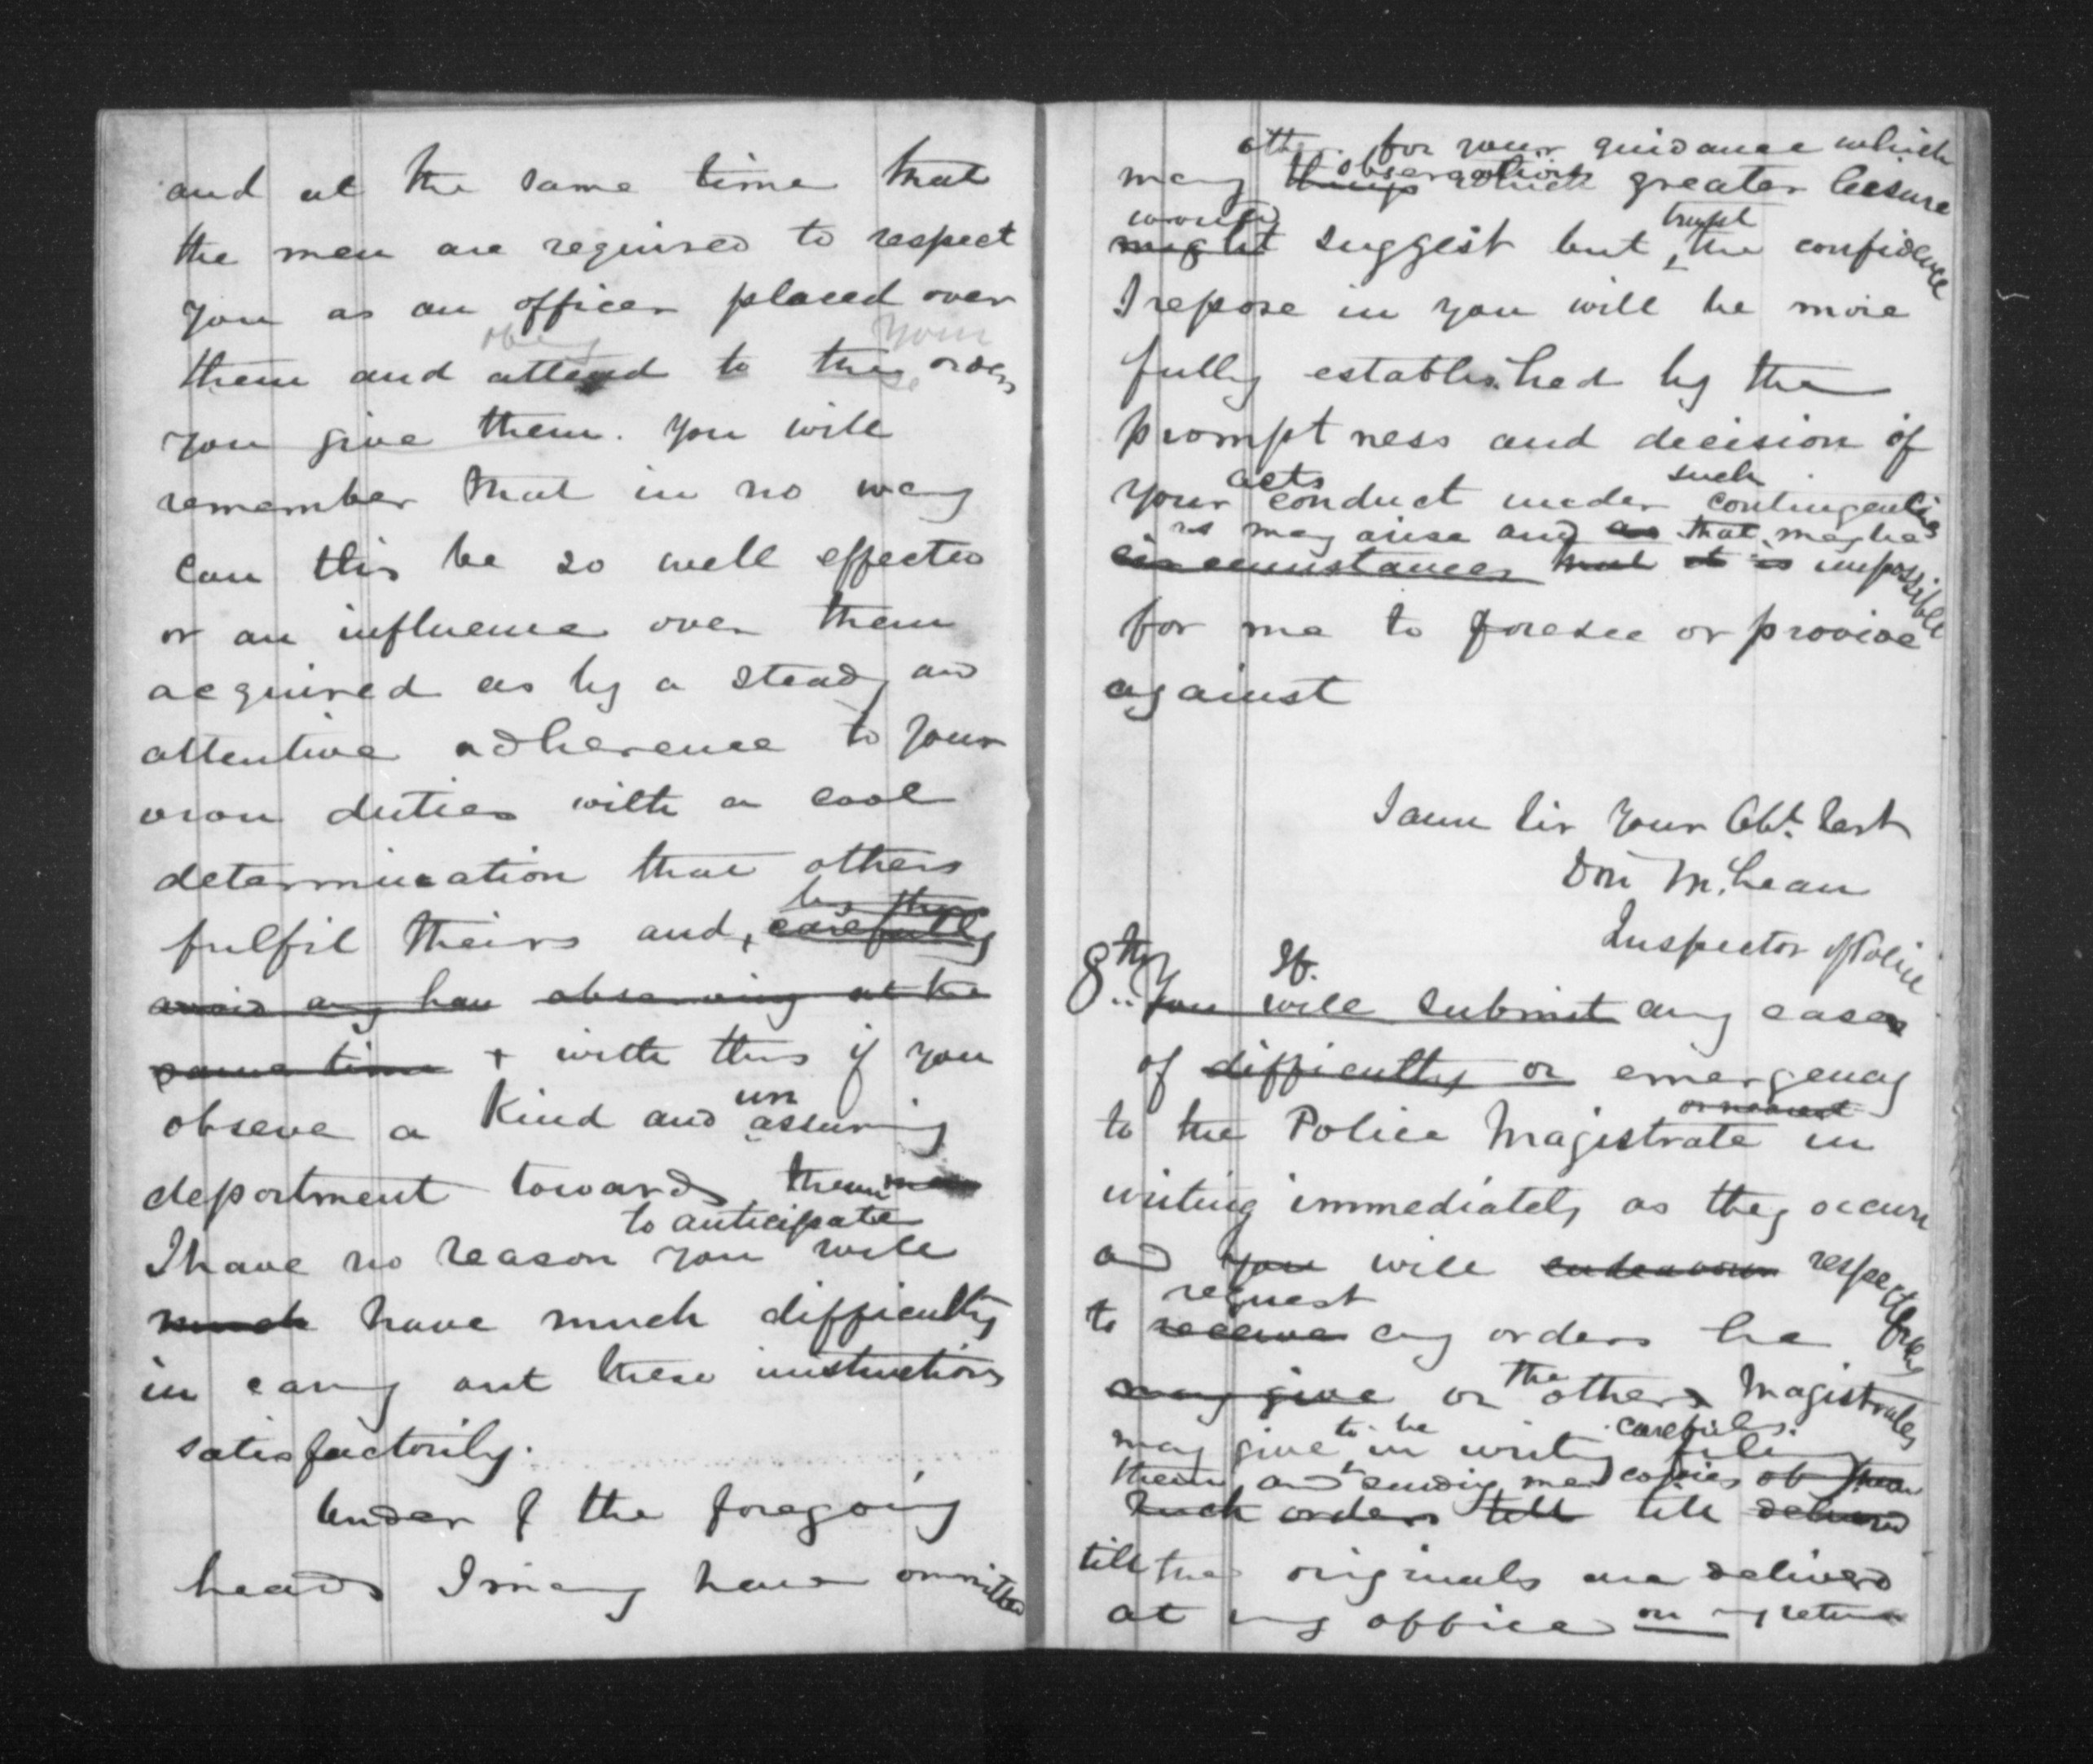 and at the same time that
the men are required to respect
you as an officer placed over
obey your
them and attend to these orders
you give them. You will
remember that in no way
can this be so well effected
or an influence over them
acquired as by a steady and
attentive adherence to your
own duties with a cool
determination that others
fulfil theirs and, carefully
avoid any hau observing at the
same time + with this if you
un
observe a Kind and assuming
deportment towards them men
to anticipate
I have no reason you will
much have much difficulty
in carry out these instructions
satisfactorily.
Under of the foregoing
heads I may have ommitted
other for your guidance which
observations
many things which greater leisure
would trust
might suggest but the confidence
I repose in you will be more
fully established by the
promptness and decision of
acts such
your conduct under contingencies
as may arise and as that may be
circumstances that it is impossible
for me to foresee or provide
against
I am Sir Your Obt. Servt
Don McLean
Inspector of Police
8th If
You will submit any cases
of difficulty or emergency
or nearest
to the Police Magistrate in
writing immediately as they occur
and you will endeavour respectfully
request
to receive any orders he
the
may give or others Magistrates
to be carefully
may give in writing filing
them and sending me copies of them
such orders till till delivered
till the originals are delivered
at my office on my return